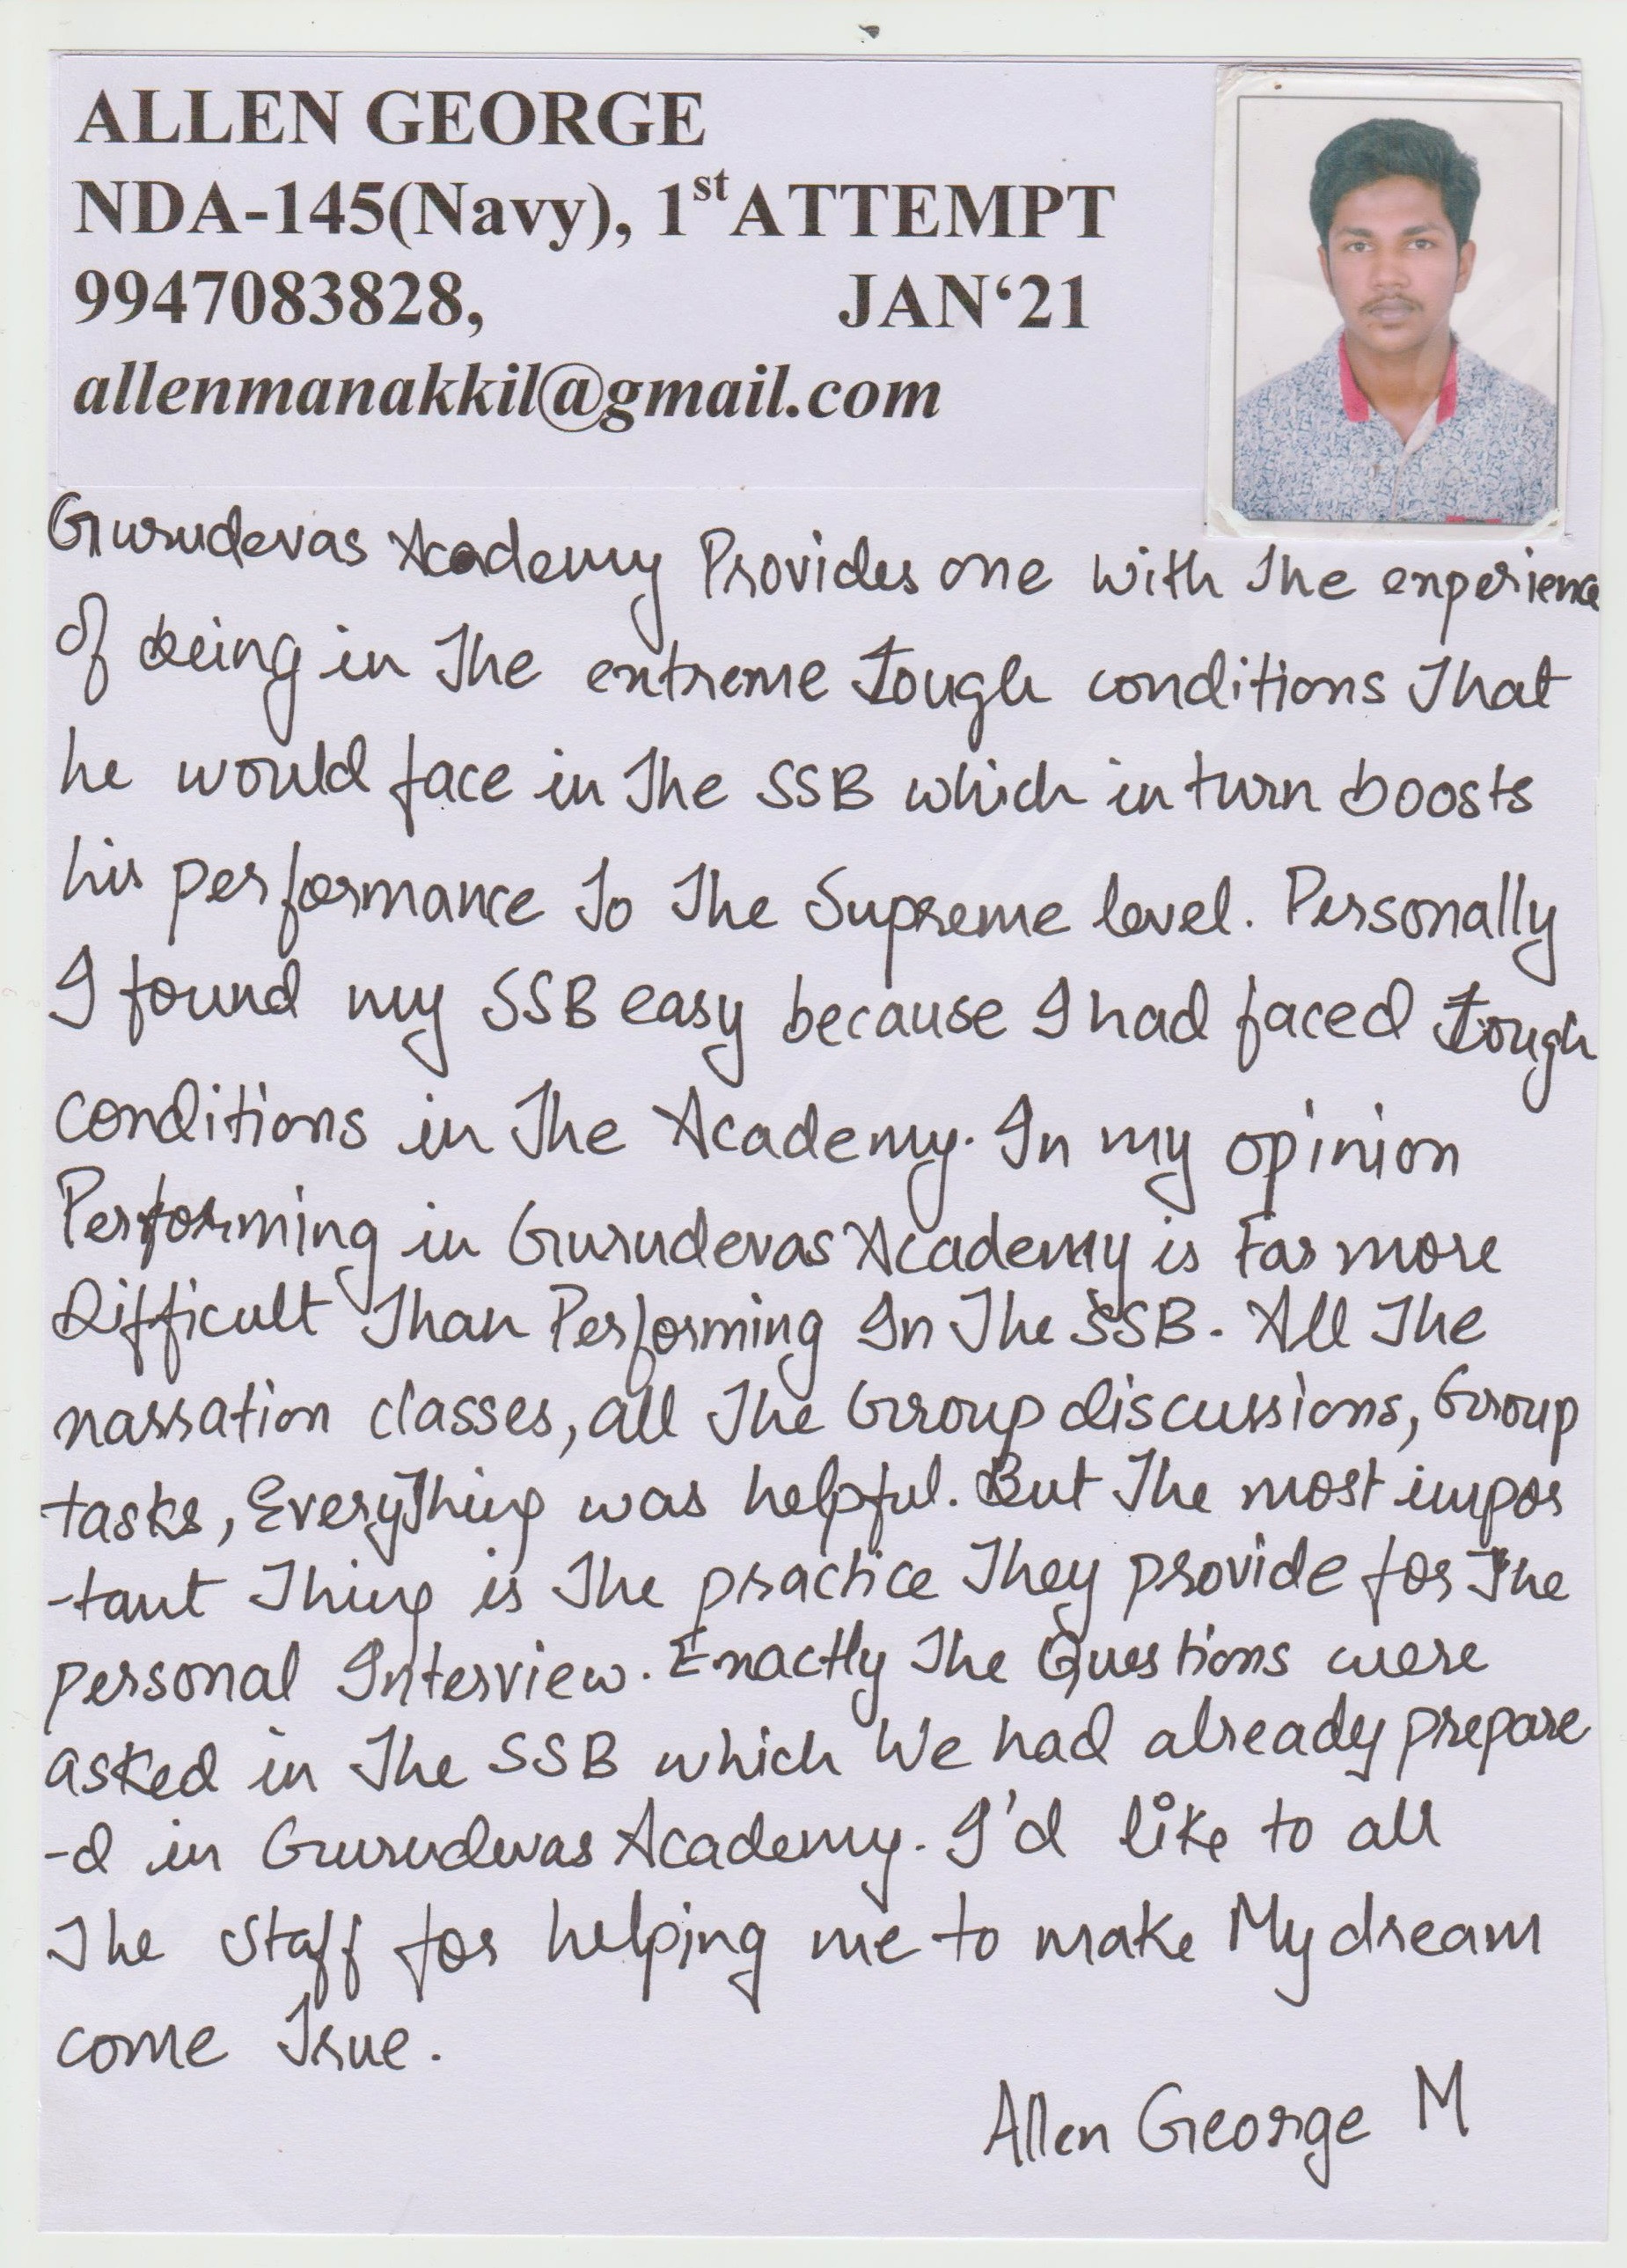 ALLEN GEORGE
NDA-145(Navy), 1st ATTEMPT
9947083828, JAN‘21
allenmanakkil@gmail.com
Gurudevas Academy Provides one with The experience
of being in The extreme Tough conditions That
he would face in The SSB which in turn boosts
his performance To The Supreme level. Personally
I found my SSB easy because I had faced Tough
conditions in The Academy. In my opinion
Performing in Gurudevas Academy is Far more
Difficult Than Performing In The SSB. All The
narration classes, all The Group discussions, Group
tasks, EveryThing was helpful. But The most impor
-tant Thing is The practice They provide for The
personal Interview. Exactly The Questions were
asked in The SSB which We had already prepare
-d in Gurudevas Academy. I'd like to all
The staff for helping me to make My dream
come True.
Allen George M